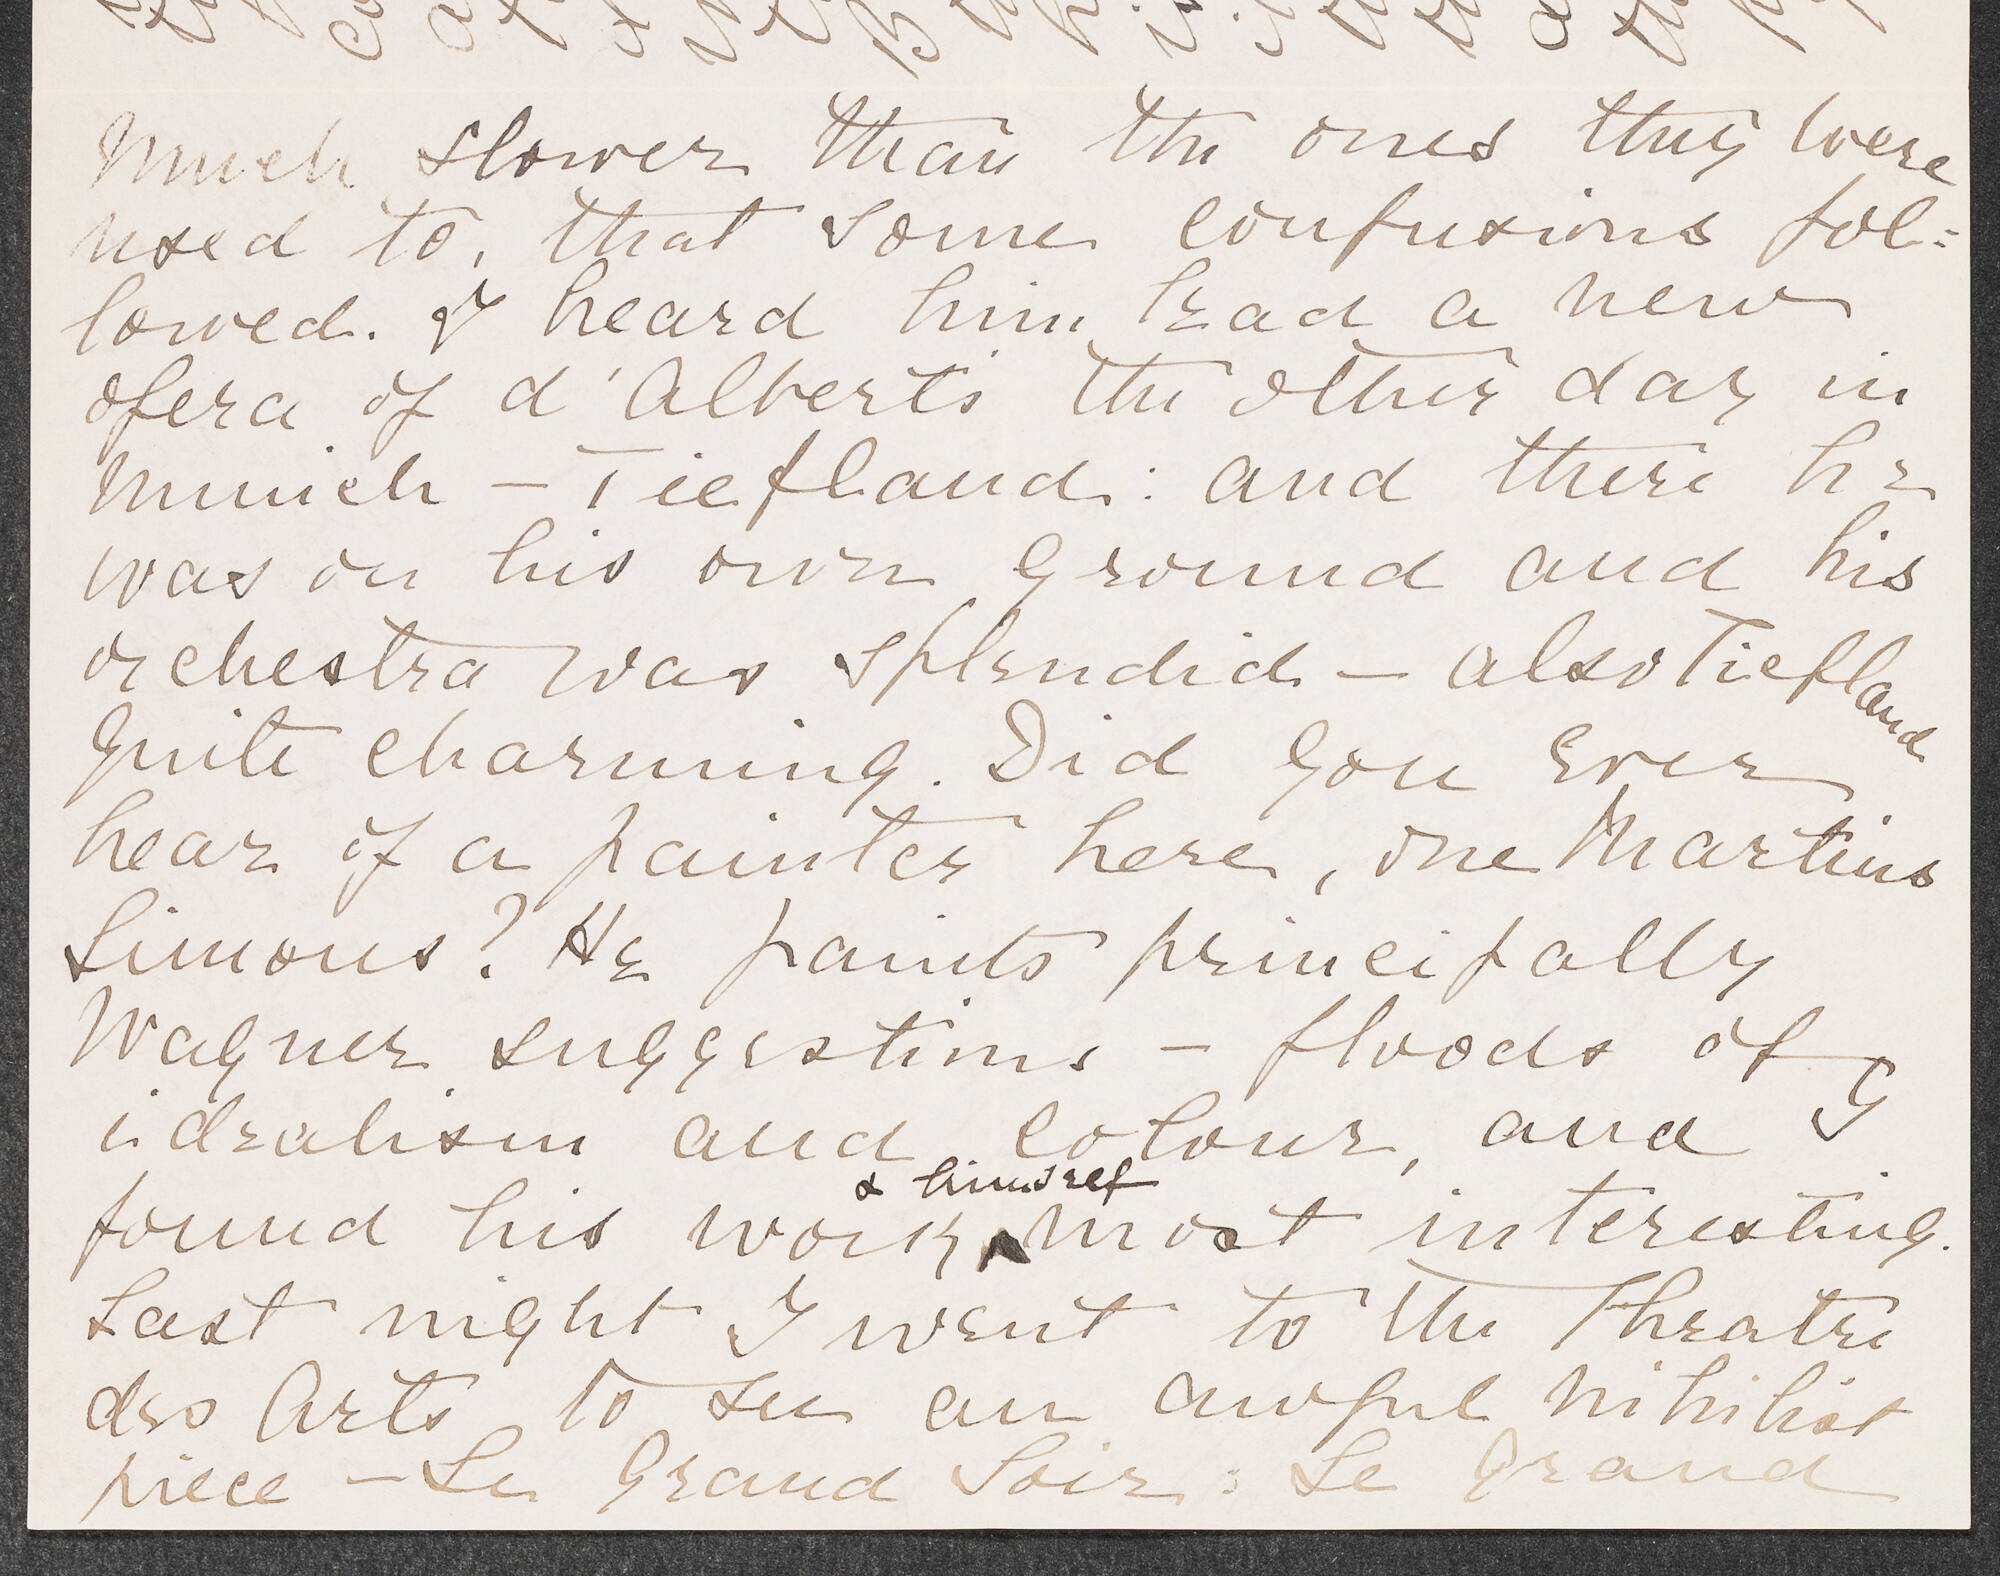 much slower than the ones they were
used to, that some confusions fol=
lowed. I heard him lead a new
opera of d'Alberts the other day in
Munich – Tiefland: and there he
was on his own ground and his
orchestra was splendid – also Tiefland
quite charming. Did you ever
hear of a painter here, one Martins
Simons? He paints principally
Wagner suggestions – floods of
idealism and colour, and I
& himself
found his work ^ most interesting.
Last night I went to the Theatre
des Arts to see an awful nihilist
piece – Le Grand Soir: Le Grand